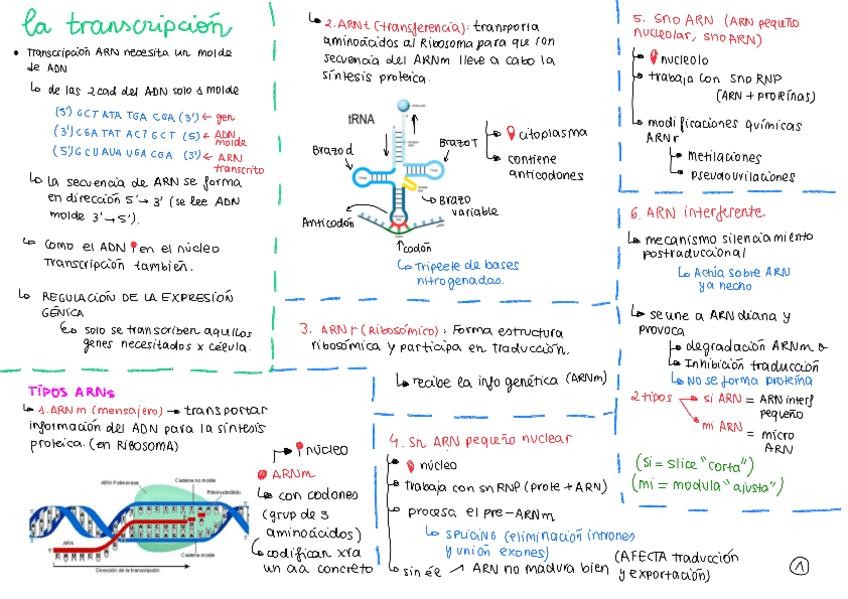 la transcripción
• Transcripción ARN necesita un molde
de ADN
↳ de las 2 cad del ADN solo 1 molde
(5') GCT ATA TGA CGA (3') ← gen
(3') CGA TAT ACT GCT (5') ← ADN
molde
(5') GCU AUA UGA CGA (3') ← ARN
transcrito
↳ La secuencia de ARN se forma
en dirección 5'→3' (se lee ADN
molde 3'→5').
↳ Como el ADN 📍 en el núcleo
Transcripción también.
↳ REGULACIÓN DE LA EXPRESIÓN
GÉNICA
↳ solo se transcriben aquellos
genes necesitados x célula.
TIPOS ARNs
↳ 1. ARNm (mensajero) → transportar
información del ADN para la síntesis
proteica. (en RIBOSOMA)
📍 núcleo
ARNm
↳ con codones
(grup de 3
aminoácidos)
↳ codifican xra
un aa concreto
ARN Polimerasa
Cadena no molde
Ribonucleótido
ARN
Cadena molde
Dirección de la transcripción
↳ 2. ARNt (transferencia): transporta
aminoácidos al Ribosoma para que con
secuencia del ARNm lleve a cabo la
síntesis proteica.
tRNA
Brazo d
Brazo T
Brazo
variable
Anticodón
codón
↳ Triplete de bases
nitrogenadas.
📍 citoplasma
contiene
anticodones
3. ARNr (ribosómico): Forma estructura
ribosómica y participa en Traducción.
↳ recibe la info genética (ARNm)
4. Sn ARN pequeño nuclear
📍 núcleo
trabaja con snRNP (prote + ARN)
procesa el pre-ARNm
↳ SPLICING (eliminación intrones
y unión exones)
sin él ↗ ARN no madura bien (AFECTA traducción
y exportación)
5. Sno ARN (ARN pequeño
nucleolar, snoARN)
📍 nucleolo
trabaja con sno RNP
(ARN + proteínas)
modificaciones químicas
ARNr
metilaciones
pseudouridilaciones
6. ARN interferente.
↳ mecanismo silenciamiento
postraduccional
↳ Actúa sobre ARN
ya hecho
↳ se une a ARN diana y
provoca
degradación ARNm o
Inhibición traducción
↳ No se forma proteína
2 tipos
si ARN = ARN interf
pequeño
mi ARN = micro
ARN
(si = slice "corta")
(mi = modula "ajusta")
1